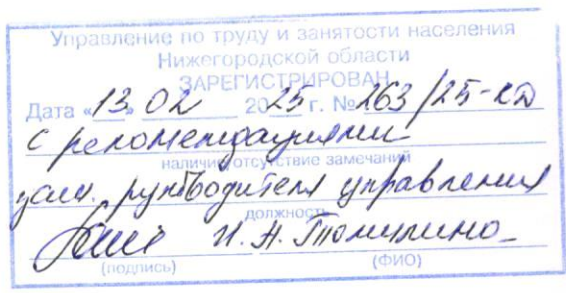 Управление по труду и занятости населения
Нижегородской области
ЗАРЕГИСТРИРОВАН
Дата «13» 02 2025 г. № 263/25-КД
с рекомендациями
наличие/отсутствие замечаний
зам. руководителя управления
должность
И. Н.
(подпись) (ФИО)